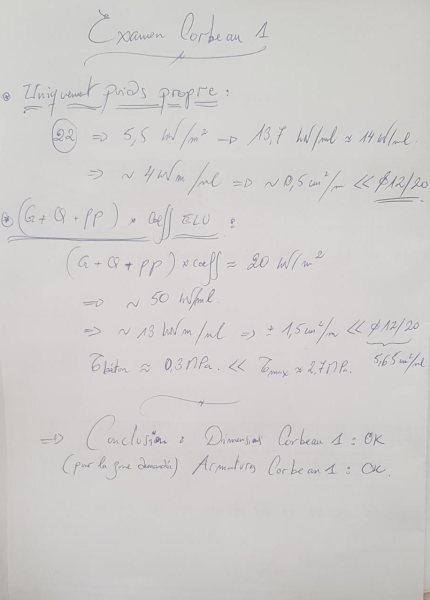 Examen Corbeau 1
• Uniquement poids propre :
22 => 5,5 kN/m² → 13,7 kN/ml ≈ 14 kN/ml.
=> ~ 4 kNm/ml => ~ 0,5 cm²/m << ∅12/20
• (G + Q + pp) × Coeff ELU :
(G + Q + pp) × coeff ≈ 20 kN/m²
=> ~ 50 kN/ml
=> ~ 13 kNm/ml => ± 1,5 cm²/m << ∅12/20
τbéton ≈ 0,3 MPa. << τmax ≈ 2,7 MPa. 5,65 cm²/ml
=> Conclusion : Dimensions Corbeau 1 : OK
(pour la zone demandée) Armatures Corbeau 1 : OK.